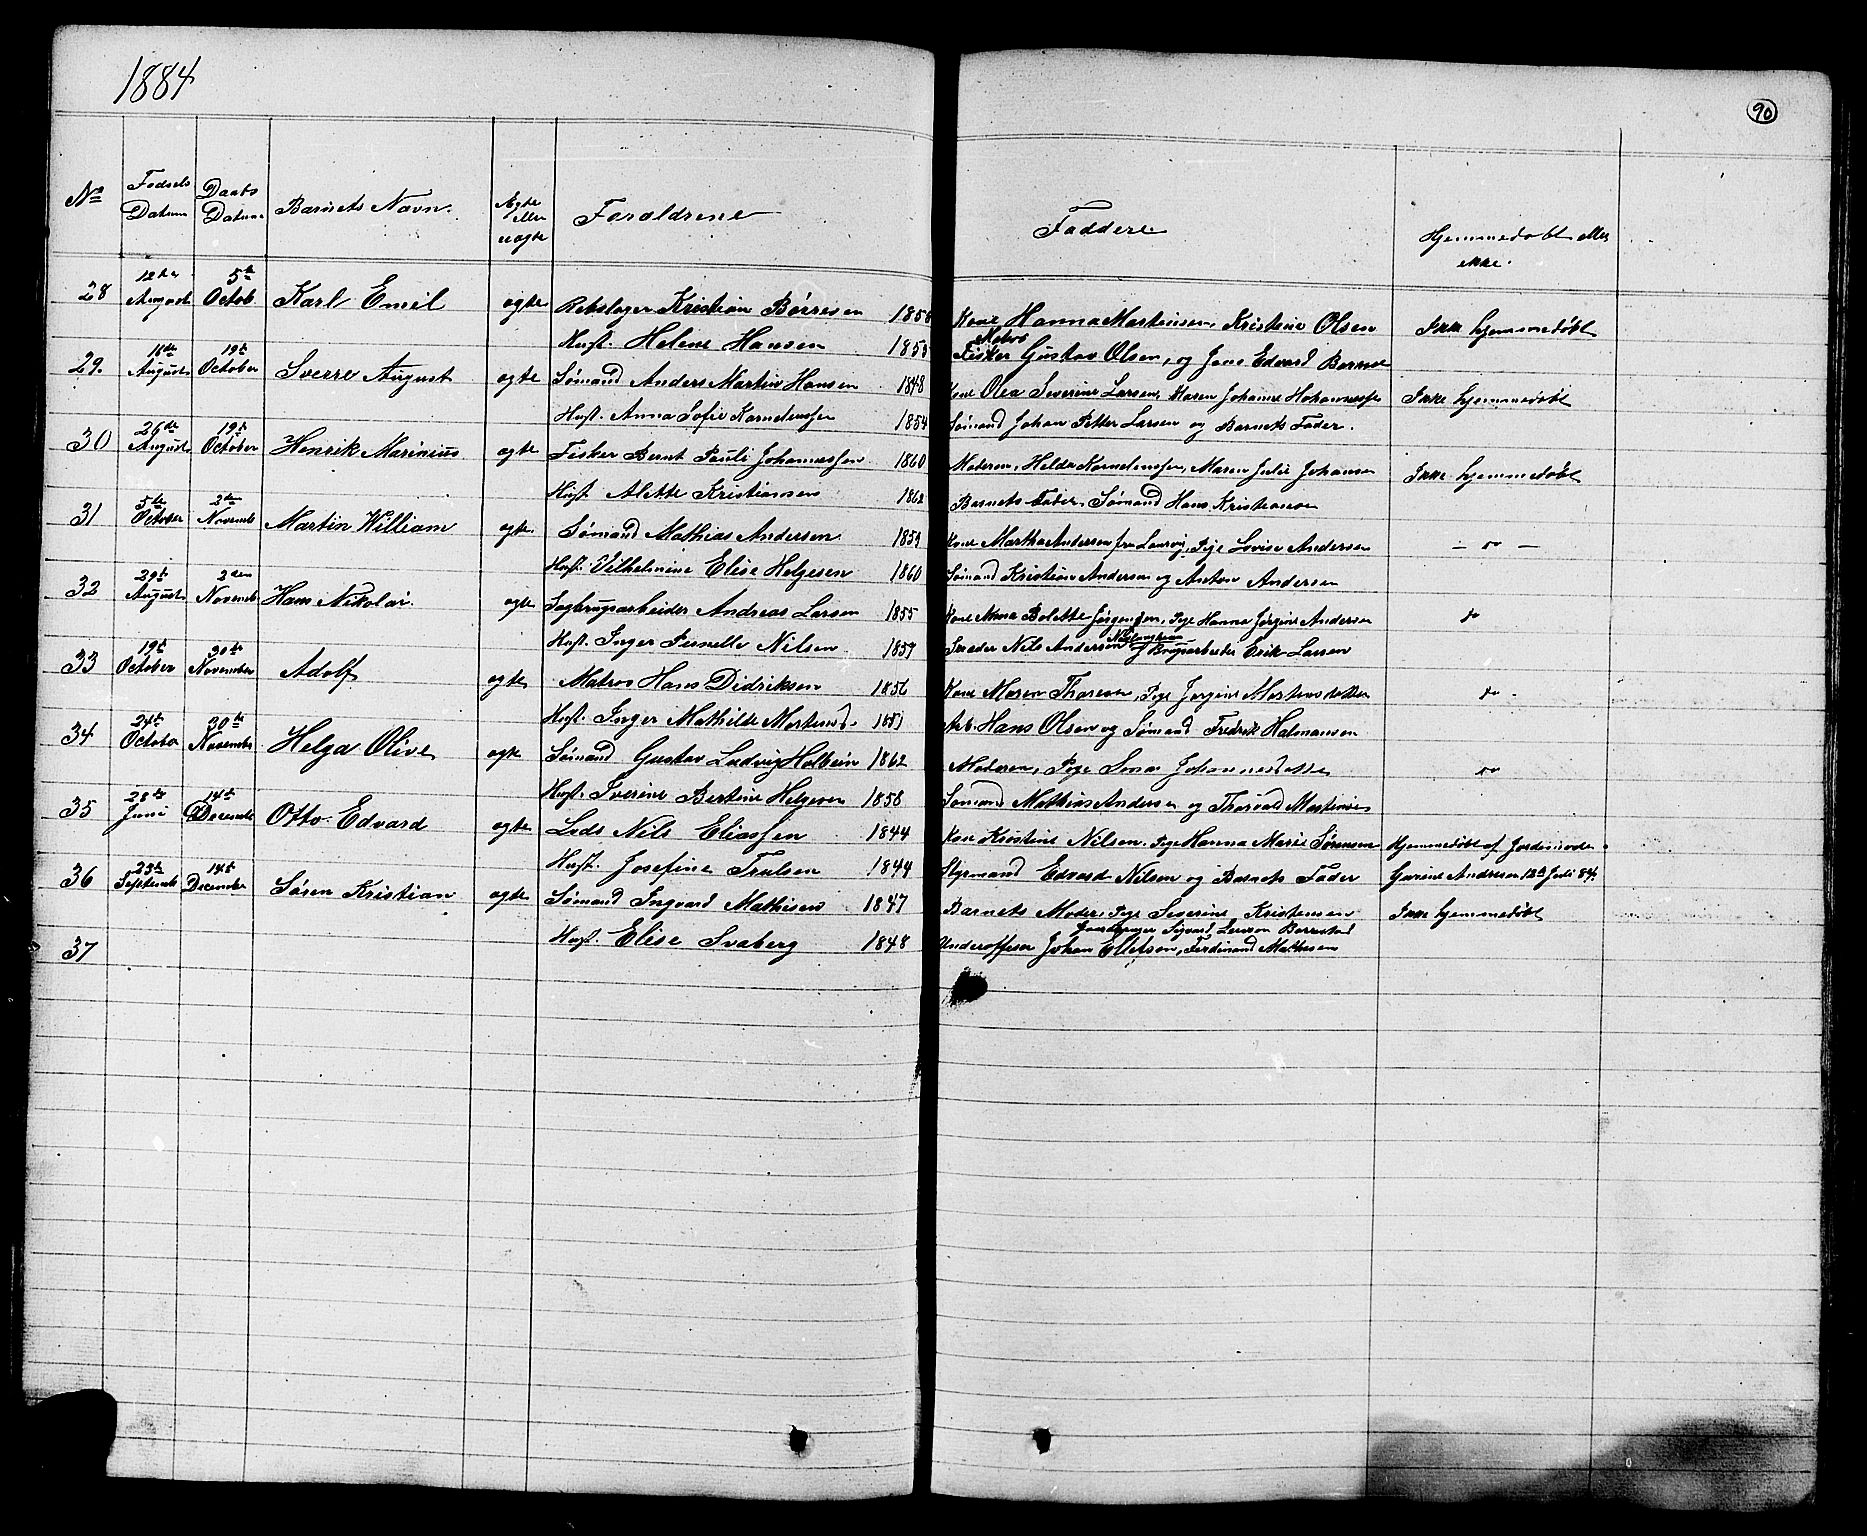 1884
90
No Fødsels Datum Daabs Datum Barnets Navn. Ægte eller uægte Forældrene Faddere Hjemmedøbt eller ikke.
28 12te August 5te Octob. Karl Emil ægte Rebslager Kristian Børresen 1858 Kone Hanna Martinsen, Kristine Olsen Ikke hjemmedøbt
Hust. Helene Hansen Matros Fisker Gustav Olsen, og Jens Edvard
29. August 19t October Sverre August ægte Sømand Anders Martin Hansen 1848 Kone Olea Severine Larsen, Maren Johanne Ikke hjemmedøbt
Hust. Anna Sofie Kornelinssen 1854 Sømand Johan Petter Larsen og Barnets Fader.
30 26de August 19t October Henrik Marinius ægte Fisker Bernt Pauli Johannessen 1860 Moderen, Helda Kornelinssen, Maren Julie Johansen Ikke hjemmedøbt
Hust. Alette Kristiansen 1862 Barnets Fader, Sømand Hans Kristiansen
31 5te October 2den Novemb Martin William ægte Sømand Mathias Andersen 1859 Kone Martha Andersen fra Laurvig, Pige Lovise Andersen — do —
Hust. Vilhelmine Elise Helgesen 1860 Sømand Kristian Andersen og Anton Andersen
32 29t August 2den Novemb Hans Nikolai. ægte Sagbrugsarbeider Andreas Larsen 1855 Kone Anna Bolette Jørgensen, Pige Hanna Jørgine Andersen do
Hust. Inger Pernelle Nilsen 1859 Nils Andersen Brugsarbeider Erik Larsen
33 19t October 30te November Adolf ægte Matros Hans Didriksen 1856 Kone Maren Thoresen, Pige Jørgine Mortensdatter do
Hust. Inger Mathilde Mortensd. Arb. Hans Olsen og Sømand Fredrik Halmansen
34 24t October 30te November Helga Olive ægte Sømand Gustav Ludvig Holbein 1862 Moderen, Pige Johannesdatter do
Hust. Iverine Bertine Helgesen 1858 Sømand Mathias Andersen og Thorvald Martinsen
35 28de Juni 14t Decembr Otto Edvard ægte Lods Nils Eliassen 1844 Kone Kristine Nilsen. Pige Hanna Marie Sørensen Hjemmedøbt af Jordemoder
Hust. Josefine Trulsen 1844 Styrmand Edvard Nilsen og Barnets Fader Gurine Andersen 12te Juli 84.
36 Septembr 14t December Søren Kristian ægte Sømand Ingvard Mathisen 1847 Barnets Moder, Pige Severine Kristensen Ikke hjemmedøbt
Hust. Elise Svaberg 1848 Underofficer Johan Ellefsen, Sigvard Ferdinand Mathisen
37